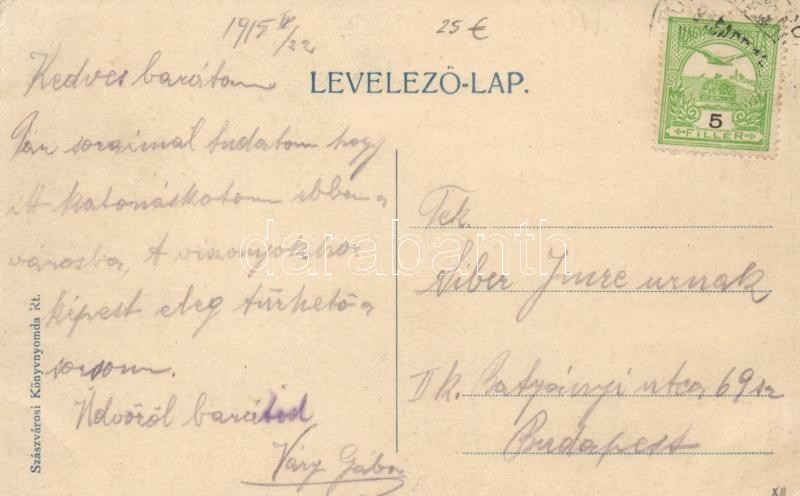 1915 IV/22
25 €
Kedves barátom
LEVELEZŐ-LAP.
Pár soraimal tudatom hogy
itt katonáskotom ebben a
városba, A viszonyokhoz
képest elég türhető a
sorsom.
Üdvözöl barátod
Váry Gábor
MAGYAR
5
FILLÉR
Tek.
Siber Imre urnak
II k. Batyányi utca 69 sz
Budapest
Szászvárosi Könyvnyomda Rt.
XII
darabanth